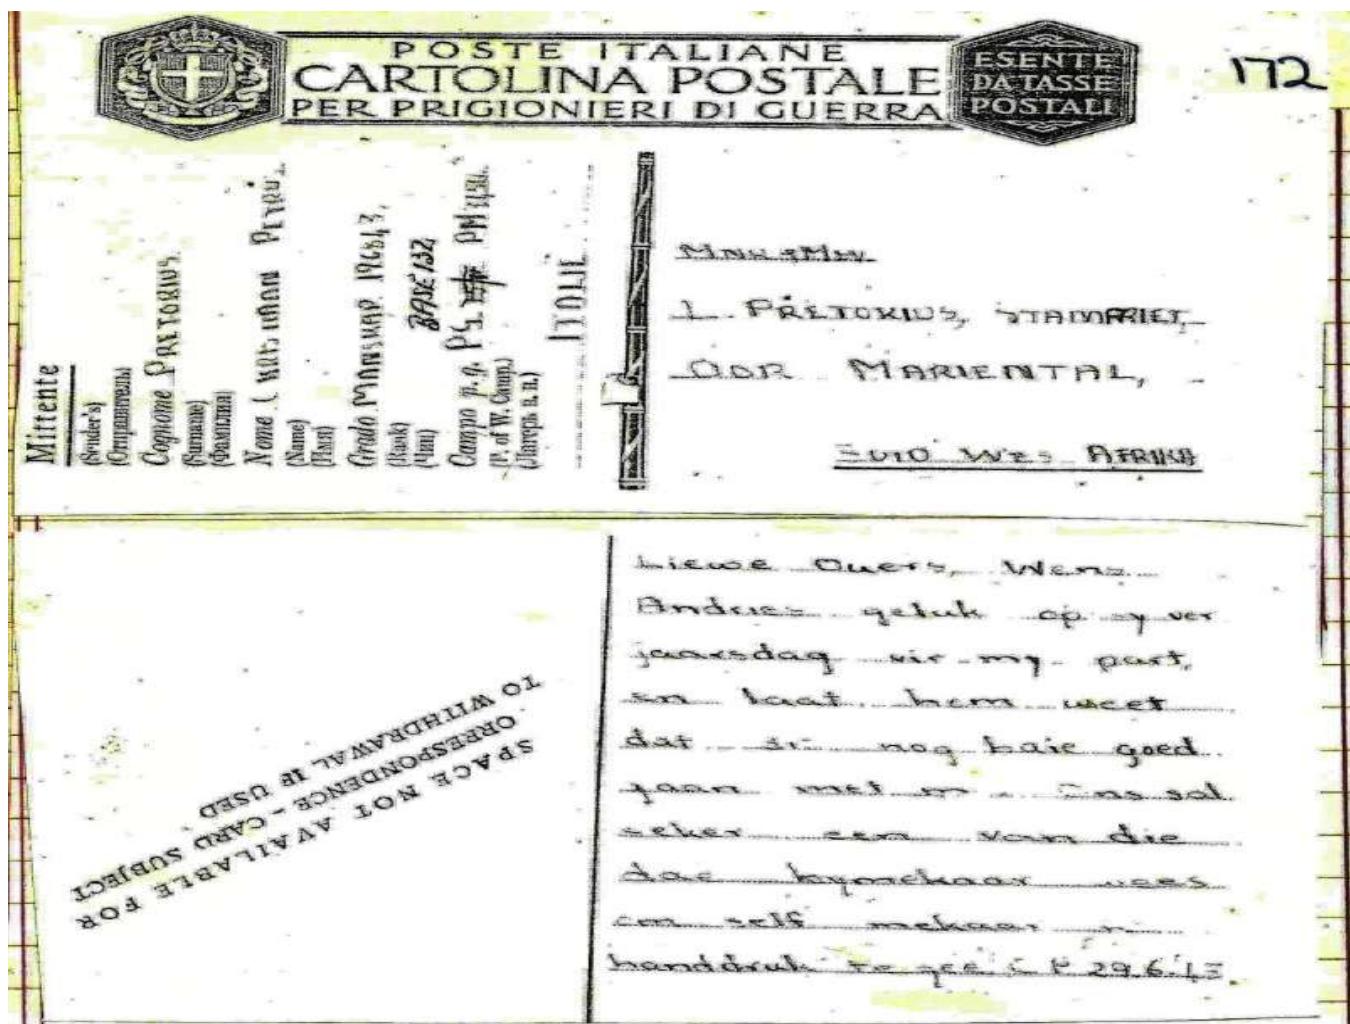 POSTE ITALIANE
CARTOLINA POSTALE
PER PRIGIONIERI DI GUERRA
ESENTE
DA TASSE
POSTALI
172
Mittente
(Sender's)
(Отправитель)
Cognome PRETORIUS.
(Surname)
(Фамилия)
Nome
(Name)
(Имя)
Grado MANSKAP. 196643,
(Rank)
(Чин)
BASE 132
Campo p. g. P.G. PM 3450.
(P. of W. Camp.)
(Лагерь в. п.)
ITALIE
MNR & MEV
PRETORIUS, STAMPRIET,
OOR MARIENTAL,
SUID WES AFRIKA
SPACE NOT AVAILABLE FOR
ORRESPONDENCE - CARD SUBJECT
TO WITHDRAWAL IF USED
Liewe Ouers, Wens
Andries geluk op sy ver
jaarsdag vir my part,
en laat hem weet
dat dit nog baie goed
gaan met my. Ons sal
seker een van die
dae bymekaar wees
om self mekaar 'n
handdruk te gee. 29.6.43